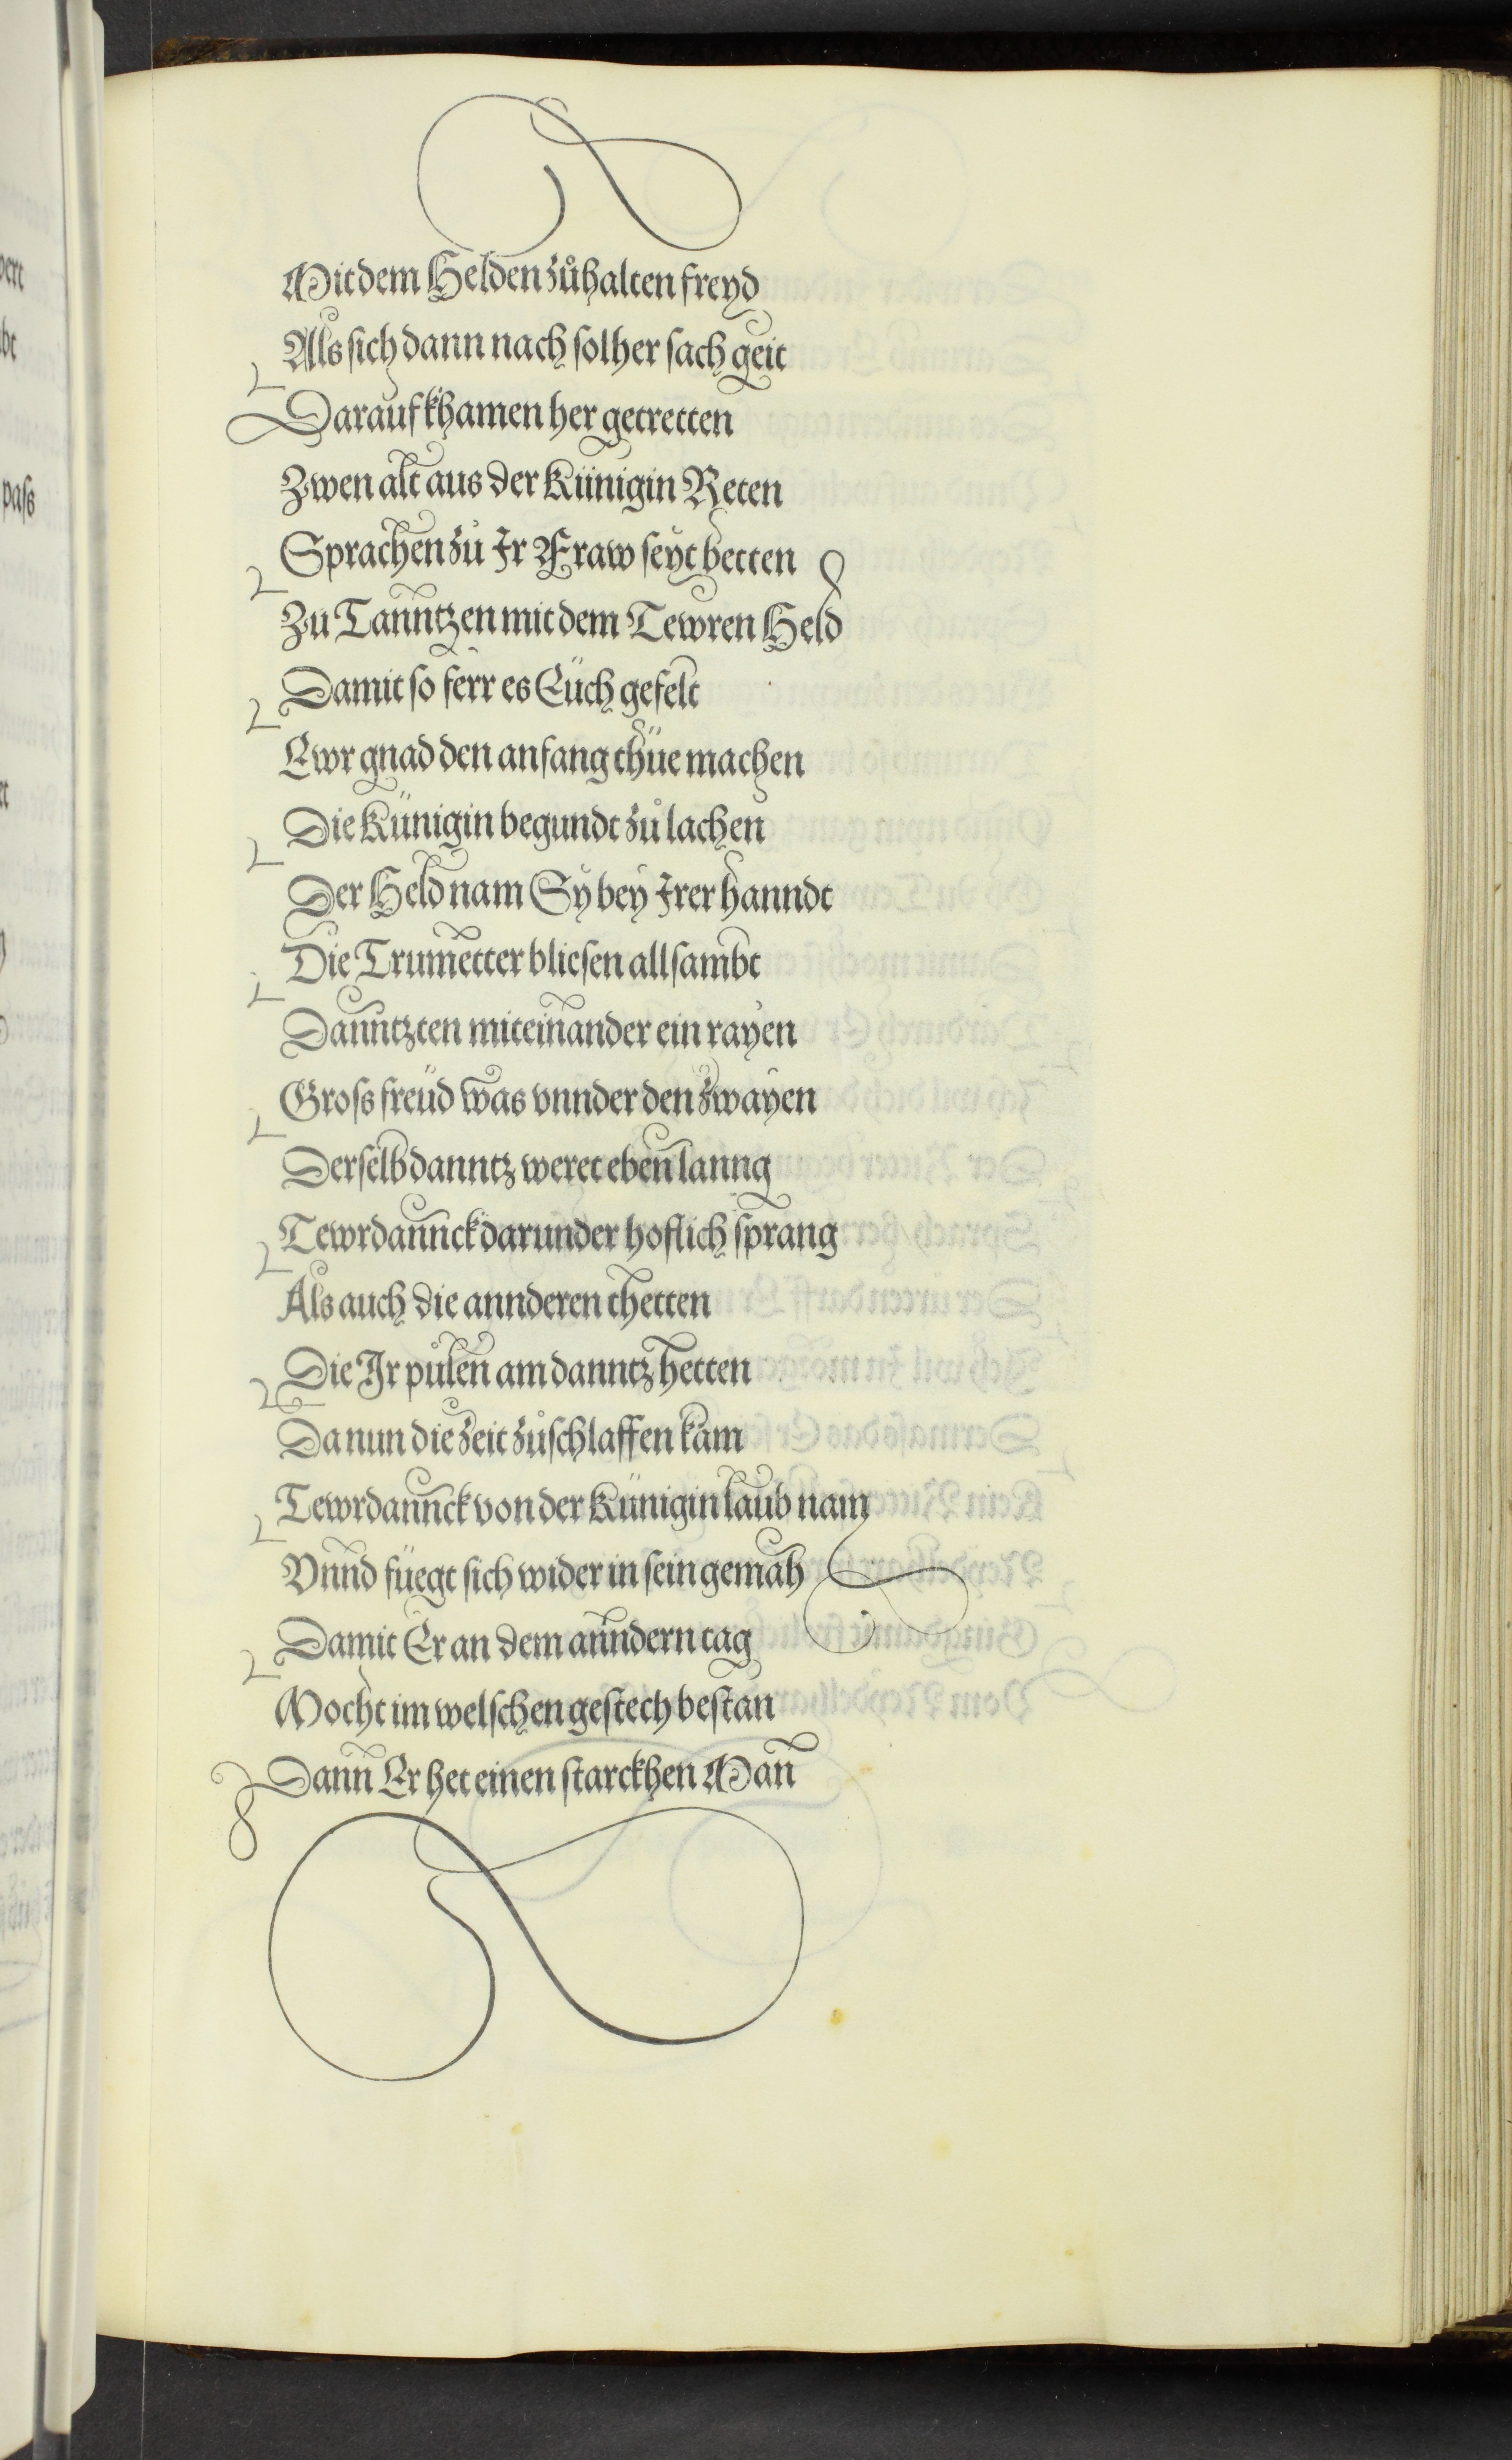 Mit dem Helden zůhalten freyd
Als sich dann nach solher sach geit
Darauf khamen her getretten
Zwen alt aus der Künigin Reten
Sprachen zů Ir Fraw seyt betten
Zu Tanntzen mit dem Tewren Held
Damit so ferr es Eüch gefelt
Ewr gnad den anfang thüe machen
Die Künigin begundt zů lachen
Der Held nam Sy bey Irer hanndt
Die Trumetter bliesen all sambt
Danntzten miteinander ein rayen
Gross freüd was vnnder den zwayen
Derselb danntz weret eben lanng
Tewrdannck darunder hoflich sprang
Als auch die annderen thetten
Die Ir půlen am danntz hetten
Da nun die zeit zůschlaffen kam
Tewrdannck von der Künigin laub nam
Vnnd füegt sich wider in sein gemah
Damit Er an dem anndern tag
Mocht im welschen gestech bestan
Dann Er het einen starckhen Man